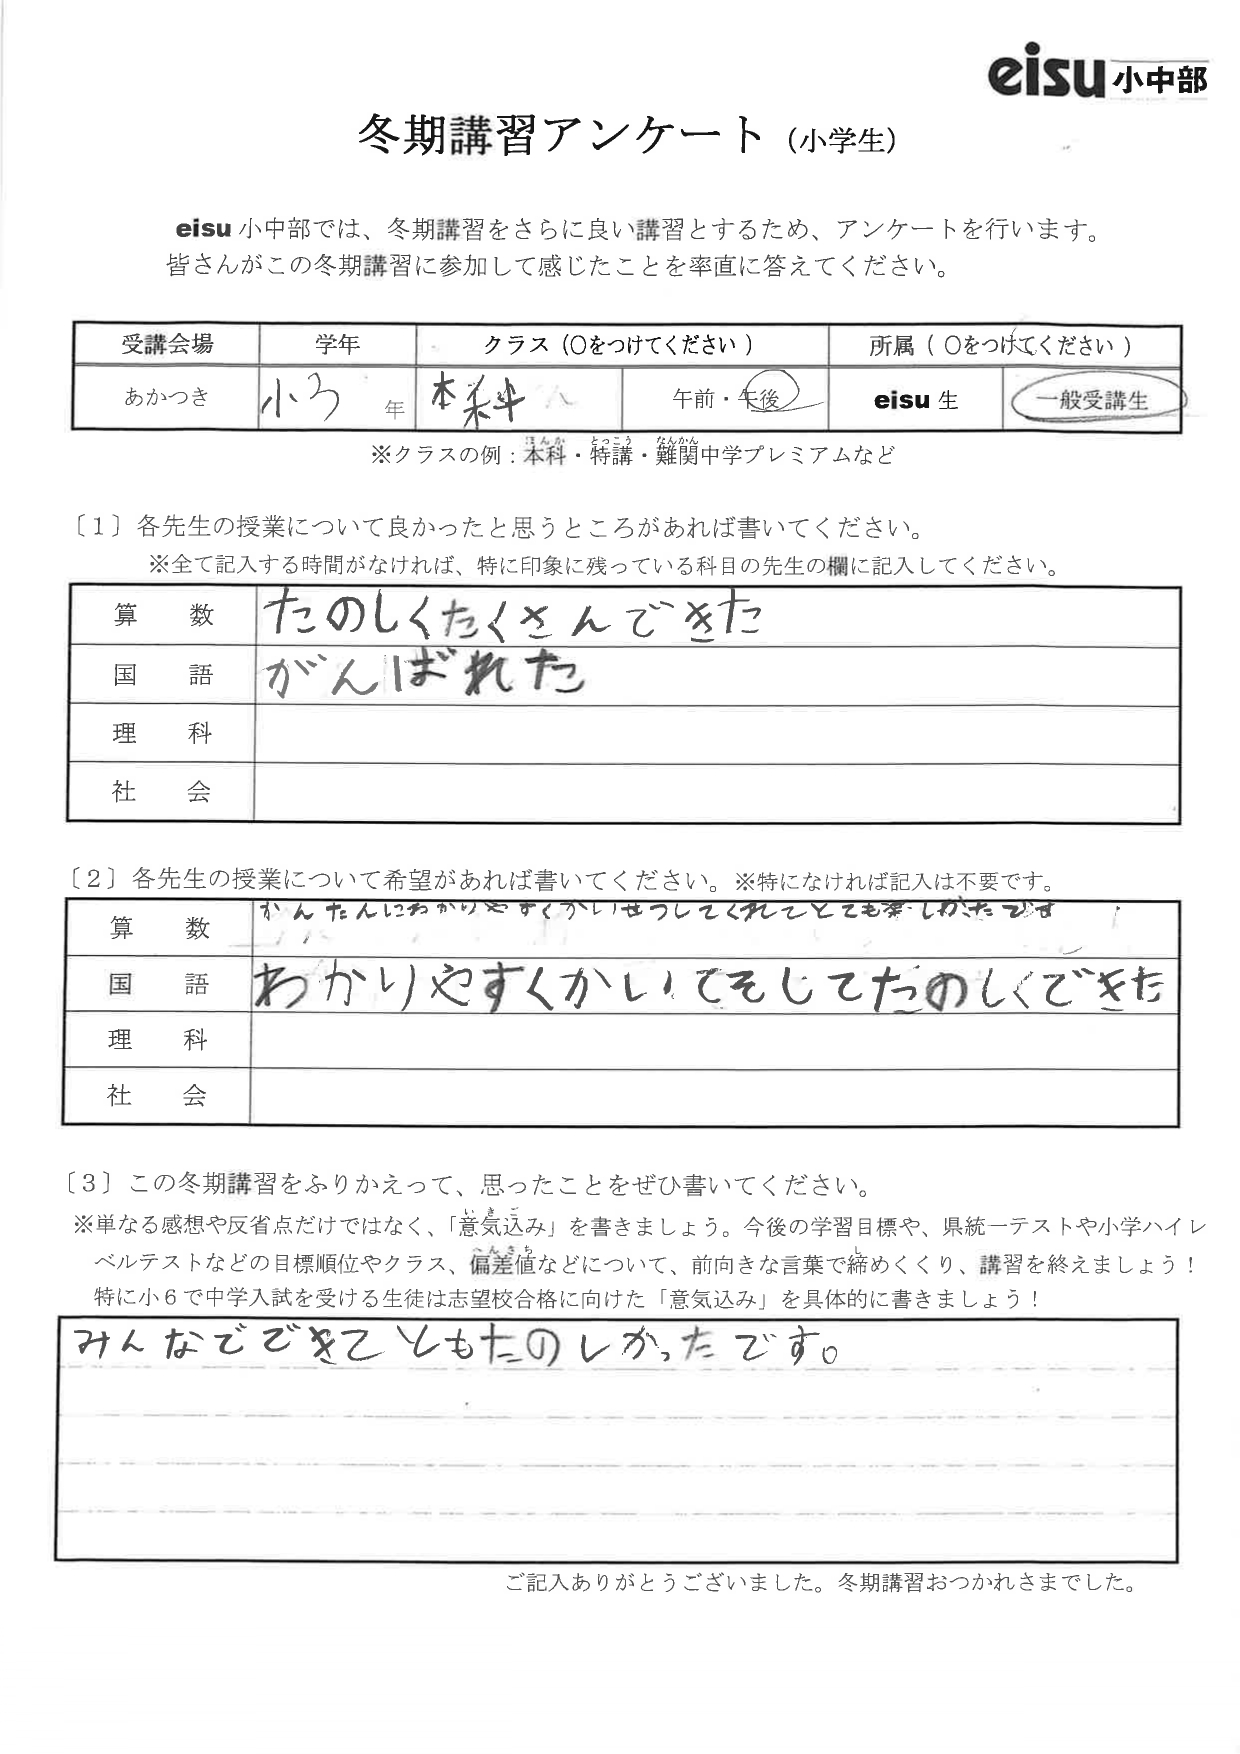 eisu 小中部
冬期講習アンケート（小学生）
eisu 小中部では、冬期講習をさらに良い講習とするため、アンケートを行います。
皆さんがこの冬期講習に参加して感じたことを率直に答えてください。
受講会場 学年 クラス（○をつけてください） 所属（○をつけてください）
あかつき 小3 年 本科 午前・午後 eisu 生 一般受講生
※クラスの例：本科・特講・難関中学プレミアムなど
〔1〕各先生の授業について良かったと思うところがあれば書いてください。
※全て記入する時間がなければ、特に印象に残っている科目の先生の欄に記入してください。
算 数 たのしくたくさんできた
国 語 がんばれた
理 科
社 会
〔2〕各先生の授業について希望があれば書いてください。※特になければ記入は不要です。
算 数 かんたんにわかりやすくかいせつしてくれてとても楽しかたです
国 語 わかりやすくかいてそしてたのしくできた
理 科
社 会
〔3〕この冬期講習をふりかえって、思ったことをぜひ書いてください。
※単なる感想や反省点だけではなく、「意気込み」を書きましょう。今後の学習目標や、県統一テストや小学ハイレ
ベルテストなどの目標順位やクラス、偏差値などについて、前向きな言葉で締めくくり、講習を終えましょう！
特に小６で中学入試を受ける生徒は志望校合格に向けた「意気込み」を具体的に書きましょう！
みんなでできてともたのしかったです。
ご記入ありがとうございました。冬期講習おつかれさまでした。